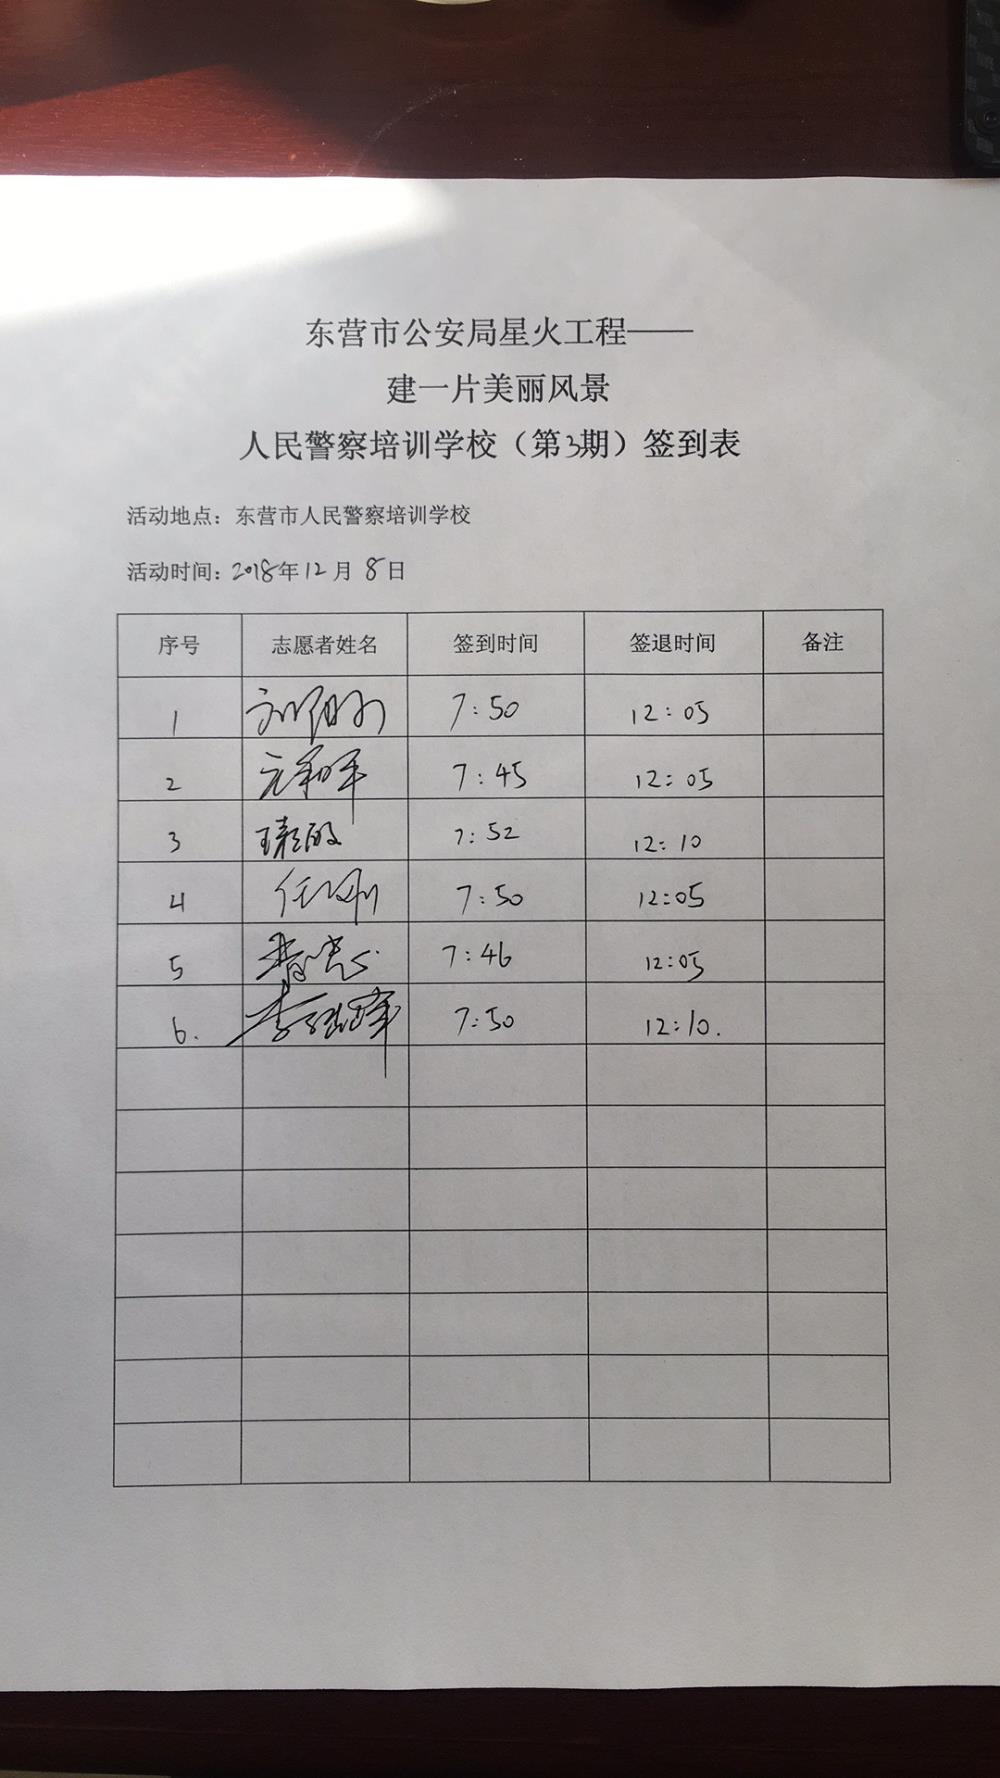 东营市公安局星火工程——
建一片美丽风景
人民警察培训学校（第3期）签到表
活动地点：东营市人民警察培训学校
活动时间：2018年12月8日
序号 志愿者姓名 签到时间 签退时间 备注
1 7:50 12:05
2 7:45 12:05
3 7:52 12:10
4 任 刚 7:50 12:05
5 7:46 12:05
6. 李 7:50 12:10.